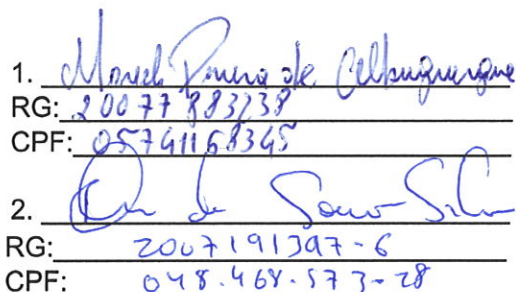 1. de Albuquerque
RG: 20077883238
CPF: 05741168345
2. de Souza Silva
RG: 2007191397-6
CPF: 048.468.573-28